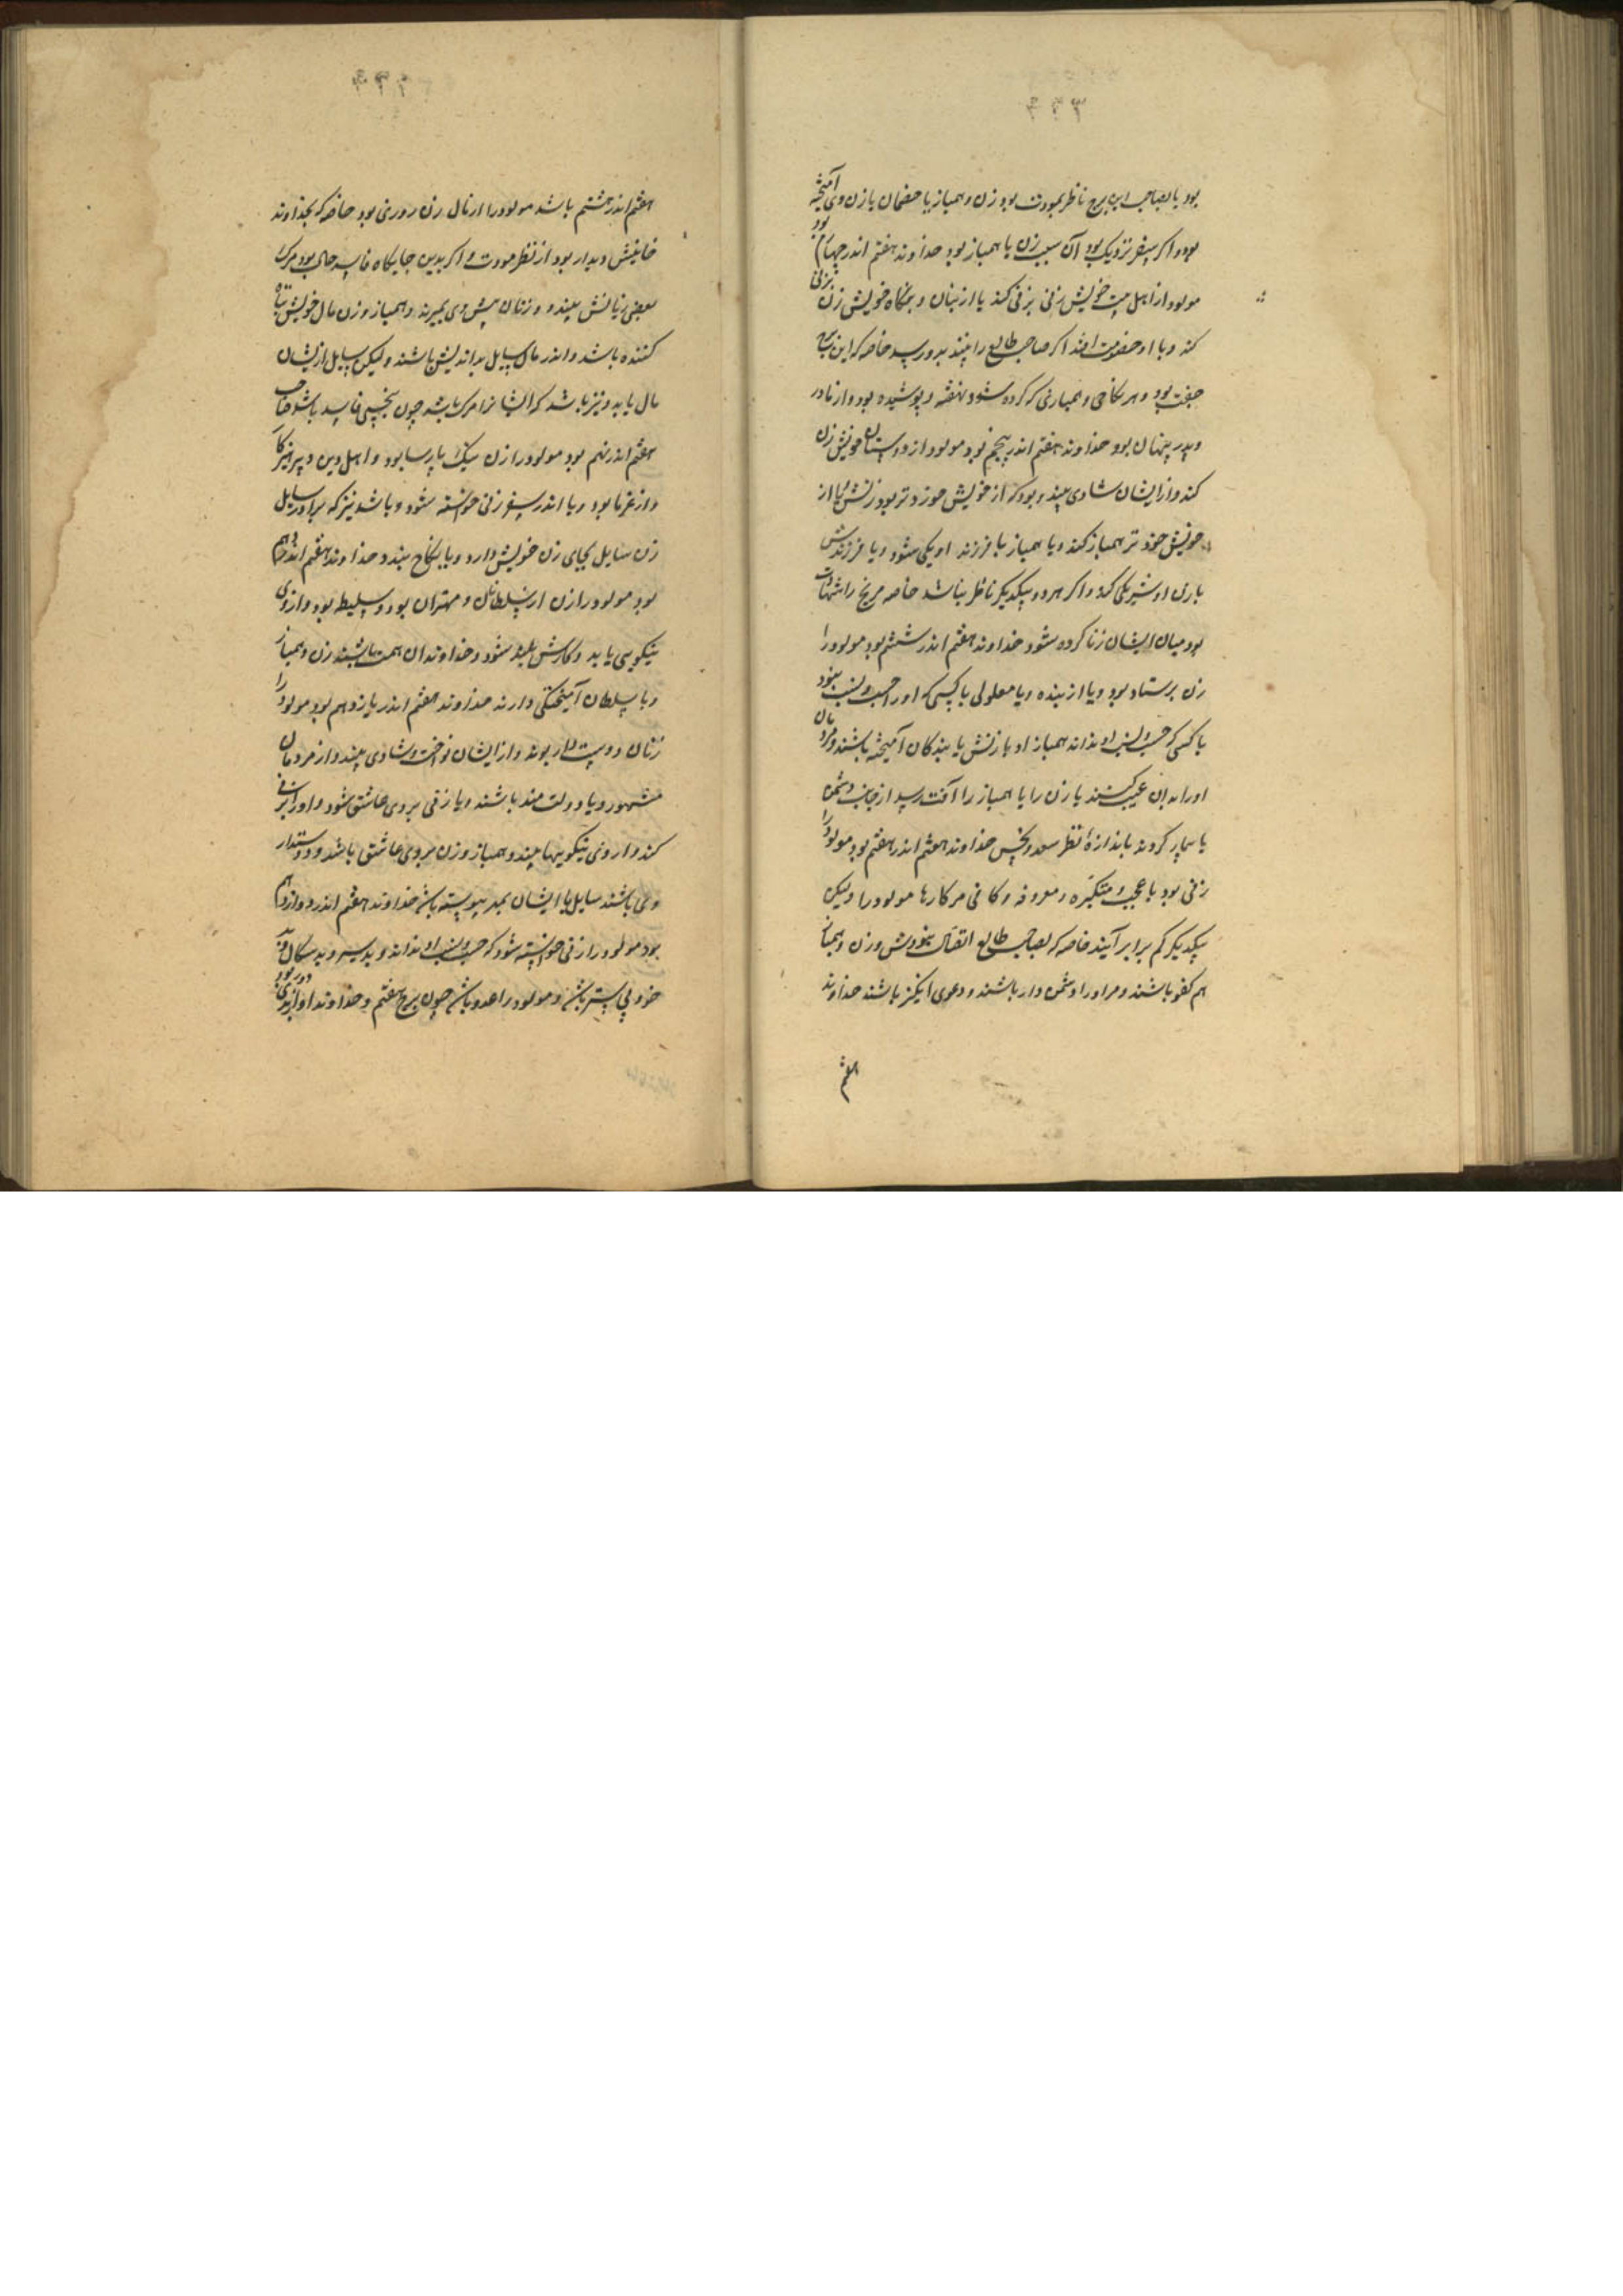 بود یا بصاحب این برج ناظر بمودت بود زن و همباز یا خصمان با زن وی آمیخته
بود و اگر بسفر نزدیک بود آن سبب زن یا همباز بود خداوند هفتم اندر چهارم بود
مولود از اهل بیت خویش زنی بزنی کند یا از بنگاه خویش زن بزنی
کند و با او خصومت افتد اگر صاحب طالع را بیند بدو رسد خاصه که این
جفت بود و هر نکاحی و همبازی که کرده شود نهفته و پوشیده بود و از مادر
و پدر پنهان بود خداوند هفتم اندر پنجم بود مولود از دوستان خویش زن
کند و از ایشان شادی بیند و بود که از خویش خوردتر بود زنش یا از
خویش خردتر همباز کند و یا همباز با فرزند او یکی شود و یا فرزندش
با زن او شریکی کند و اگر هر دو بیکدیگر ناظر باشد خاصه مریخ را شهادت
بود میان ایشان زنا کرده شود خداوند هفتم اندر ششم بود مولود را
زن پرستاد بود و یا از بنده و یا معلولی یا کسی که او را حسب و نسب نبود
یا کسی که حسب و نسب او نداند همباز او با زنش یا بندگان آمیخته باشند و مردمان
او را بدان عیب کنند یا زن را یا همباز را آفت رسد از جانب دشمن
یا بیمار گردند باندازهٔ نظر سعد و نحس خداوند هفتم اندر هفتم بود مولود را
زنی بود با عجب و متکبره و معروفه و کافی مر کارها مولود را ولیکن
بیکدیگر کم برابر آیند خاصه که بصاحب طالع اتصال نبودش و زن و همباز
هم کفو باشند و مر او را دشمن دار باشند و دعوی انگیز باشند خداوند
هفتم
هفتم اندر هشتم باشد مولود را از مال زن روزی بود خاصه که بخداوند
خانیش دیدار بود از نظر مودت و اگر بدین جایگاه فاسد حال بود مرگ
بعضی زنانش بیند و زنان پیش وی بمیرند و همباز و زن مال خویش تباه
کننده باشد و اندر مال سایل بداندیش باشند و لیکن سایل از ایشان
مال یابد و نیز باشد که ایشانرا مرگ باشد چون بنحسی فاسد باشد صاحب
هفتم اندر نهم بود مولود را زن نیک پارسا بود و اهل دین و پرهیزگار
و از غربا بود و یا اندر سفر زنی خواسته شود و باشد نیز که برادر سایل
زن سایل بجای زن خویش دارد و یا بنکاح بیند و خداوند هفتم اندر دهم
بود مولود را زن از سلطانان و مهتران بود و سلیطه بود و از وی
نیکویی یابد و کارش بلند شود و خداوندان همت باشند زن و همباز
و با سلطان آمیختگی دارند خداوند هفتم اندر یازدهم بود مولود را
زنان دوست دار بوند و از ایشان نواخت و شادی بیند و از مردمان
مشهور و یا دولت مند باشند و یا زنی بروی عاشق شود و او را بزنی
کند و از وی نیکویها بیند و همباز و زن بر وی عاشق باشد و دوستدار
وی باشند سایل با ایشان بمهر پیوسته باشد خداوند هفتم اندر دوازدهم
بود مولود را زنی خواسته شود که حسب و نسب او نداند و بدسیر و بدسگال
خوی بستر باشد و مولود را عدو باشد چون برج هفتم و خداوند او از بدی دور بود